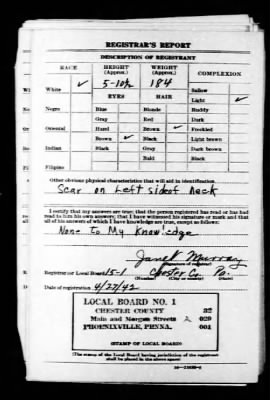 REGISTRAR'S REPORT
DESCRIPTION OF REGISTRANT
RACE HEIGHT (Approx.) WEIGHT (Approx.) COMPLEXION
5-10½ 184
White ✓ EYES HAIR Sallow
Light ✓
Negro Blue Blonde Ruddy
Gray Red Dark
Oriental Hazel Brown ✓ Freckled
Brown ✓ Black Light brown
Indian Black Gray Dark brown
Bald Black
Filipino
Other obvious physical characteristics that will aid in identification
Scar on Left side of Neck
I certify that my answers are true; that the person registered has read or has had
read to him his own answers; that I have witnessed his signature or mark and that
all of his answers of which I have knowledge are true, except as follows:
None to My Knowledge
Jane Murray
Registrar for Local Board 15-1 Chester Co. Pa.
(Number) (City or county) (State)
Date of registration 4/27/42
LOCAL BOARD NO. 1
CHESTER COUNTY 32
Main and Morgan Streets 029
PHOENIXVILLE, PENNA. 001
(STAMP OF LOCAL BOARD)
(The stamp of the Local Board having jurisdiction of the registrant
shall be placed in the above space)